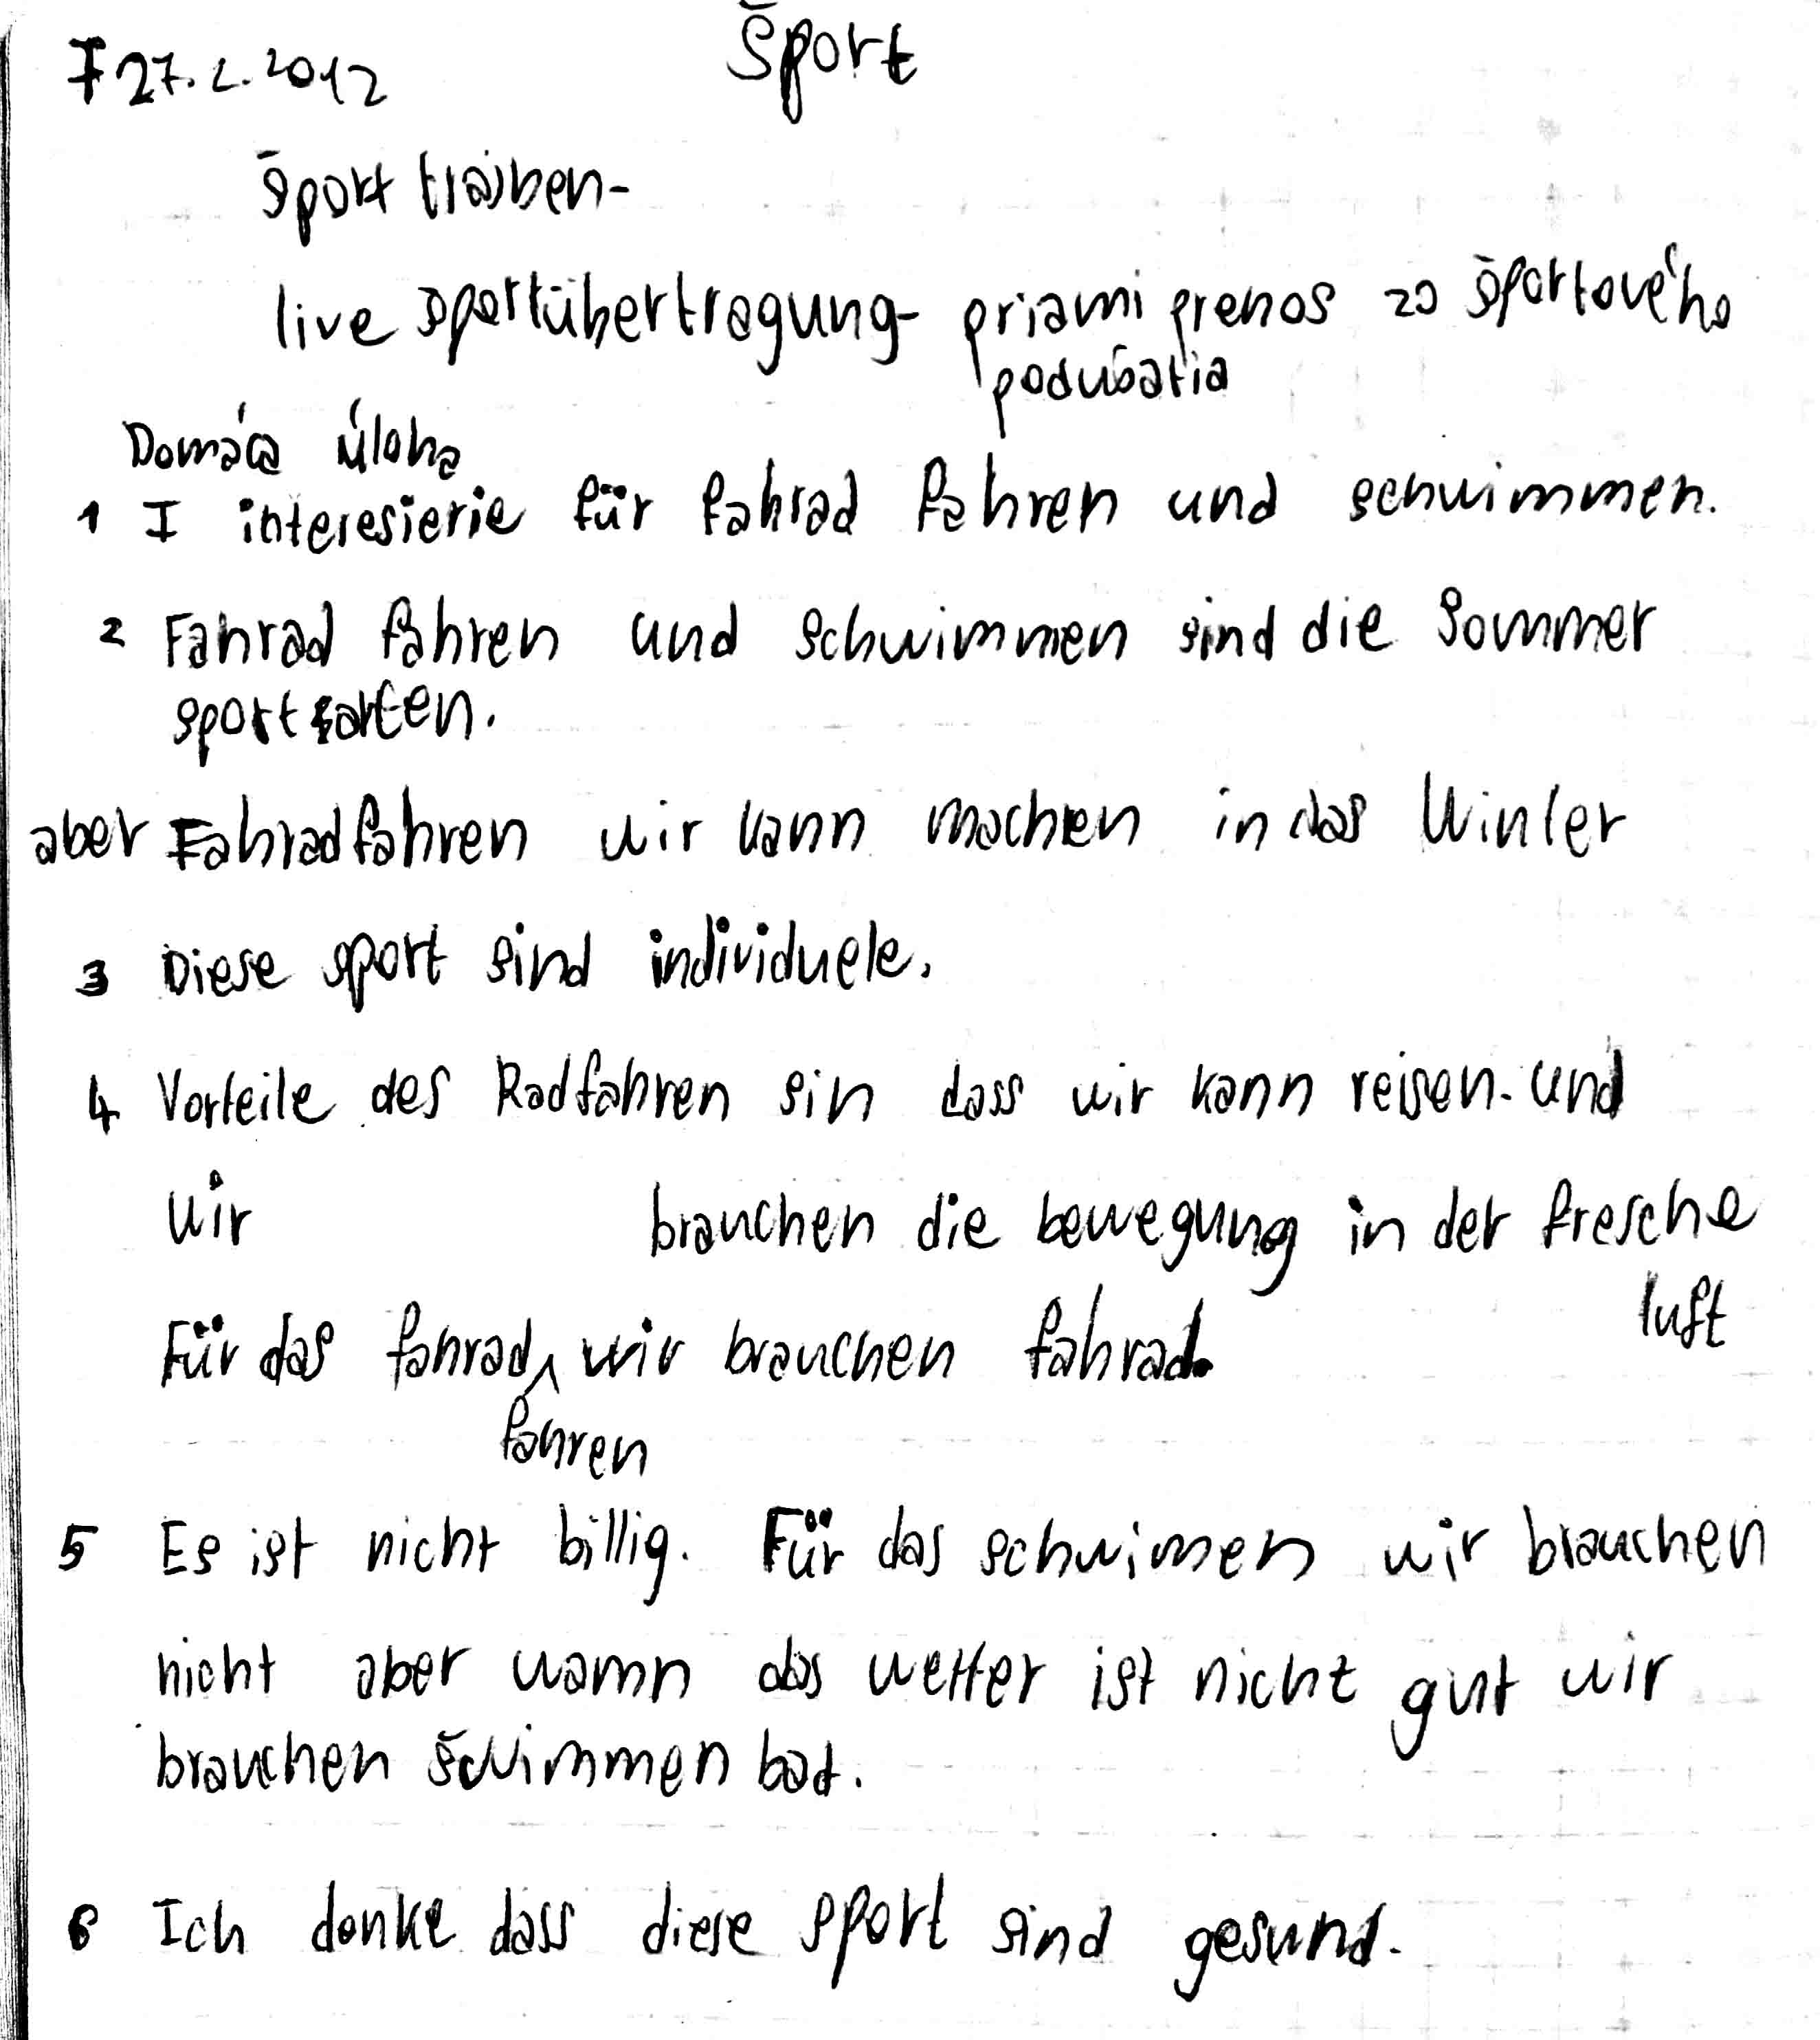 27.2.2012 Šport
Šport traiben-
live sportübertragung- priami prenos zo športového
podujatia
Domáca úloha
1 I interesierie für fahrad fahren und schwimmen.
2 Fahrad fahren und schwimmen sind die Sommer
sportsarten.
aber Fahradfahren wir kann machen in das Winter
3 Diese sport sind individuele.
4 Vorteile des Radfahren sin dass wir kann reisen. und
wir brauchen die bewegung in der fresche
luft
Für das fahrad wir brauchen fahrad.
fahren
5 Es ist nicht billig. Für das schwimen wir brauchen
nicht aber wann das wetter ist nicht gut wir
brauchen šwimmen bad.
6 Ich denke dass diese sport sind gesund.